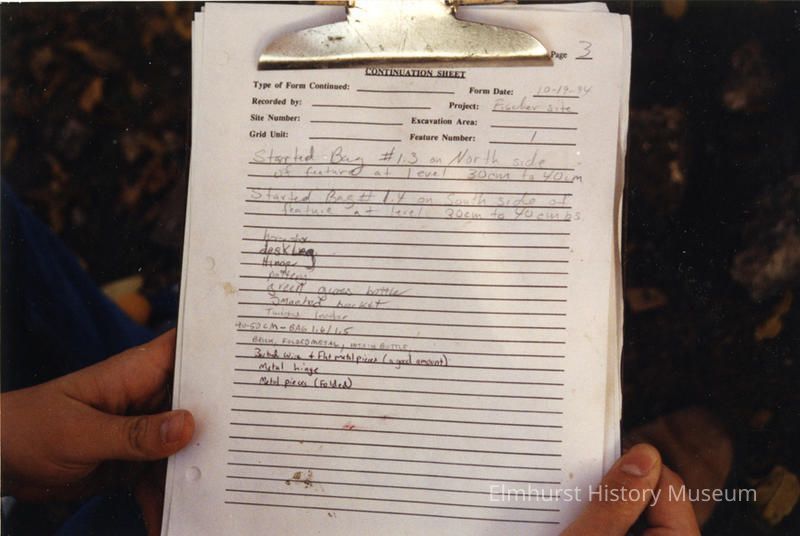 Page 3
CONTINUATION SHEET
Type of Form Continued:
Form Date: 10-19-94
Recorded by:
Project: Fischer site
Site Number:
Excavation Area:
Grid Unit:
Feature Number: 1
Started Bag #1.3 on North side
of feature at level 30cm to 40cm
Started Bag# 1.4 on South side of
feature at level 20cm to 40cmbs
desk leg
Hinge
pottery
green glass bottle
Smashed bucket
40-50 CM - BAG 1.6/1.5
BRICK, FOLDED METAL, BOTTLE
Barbed wire & Flat metal pieces (a good amount)
Metal hinge
Metal pieces (Folded)
Elmhurst History Museum